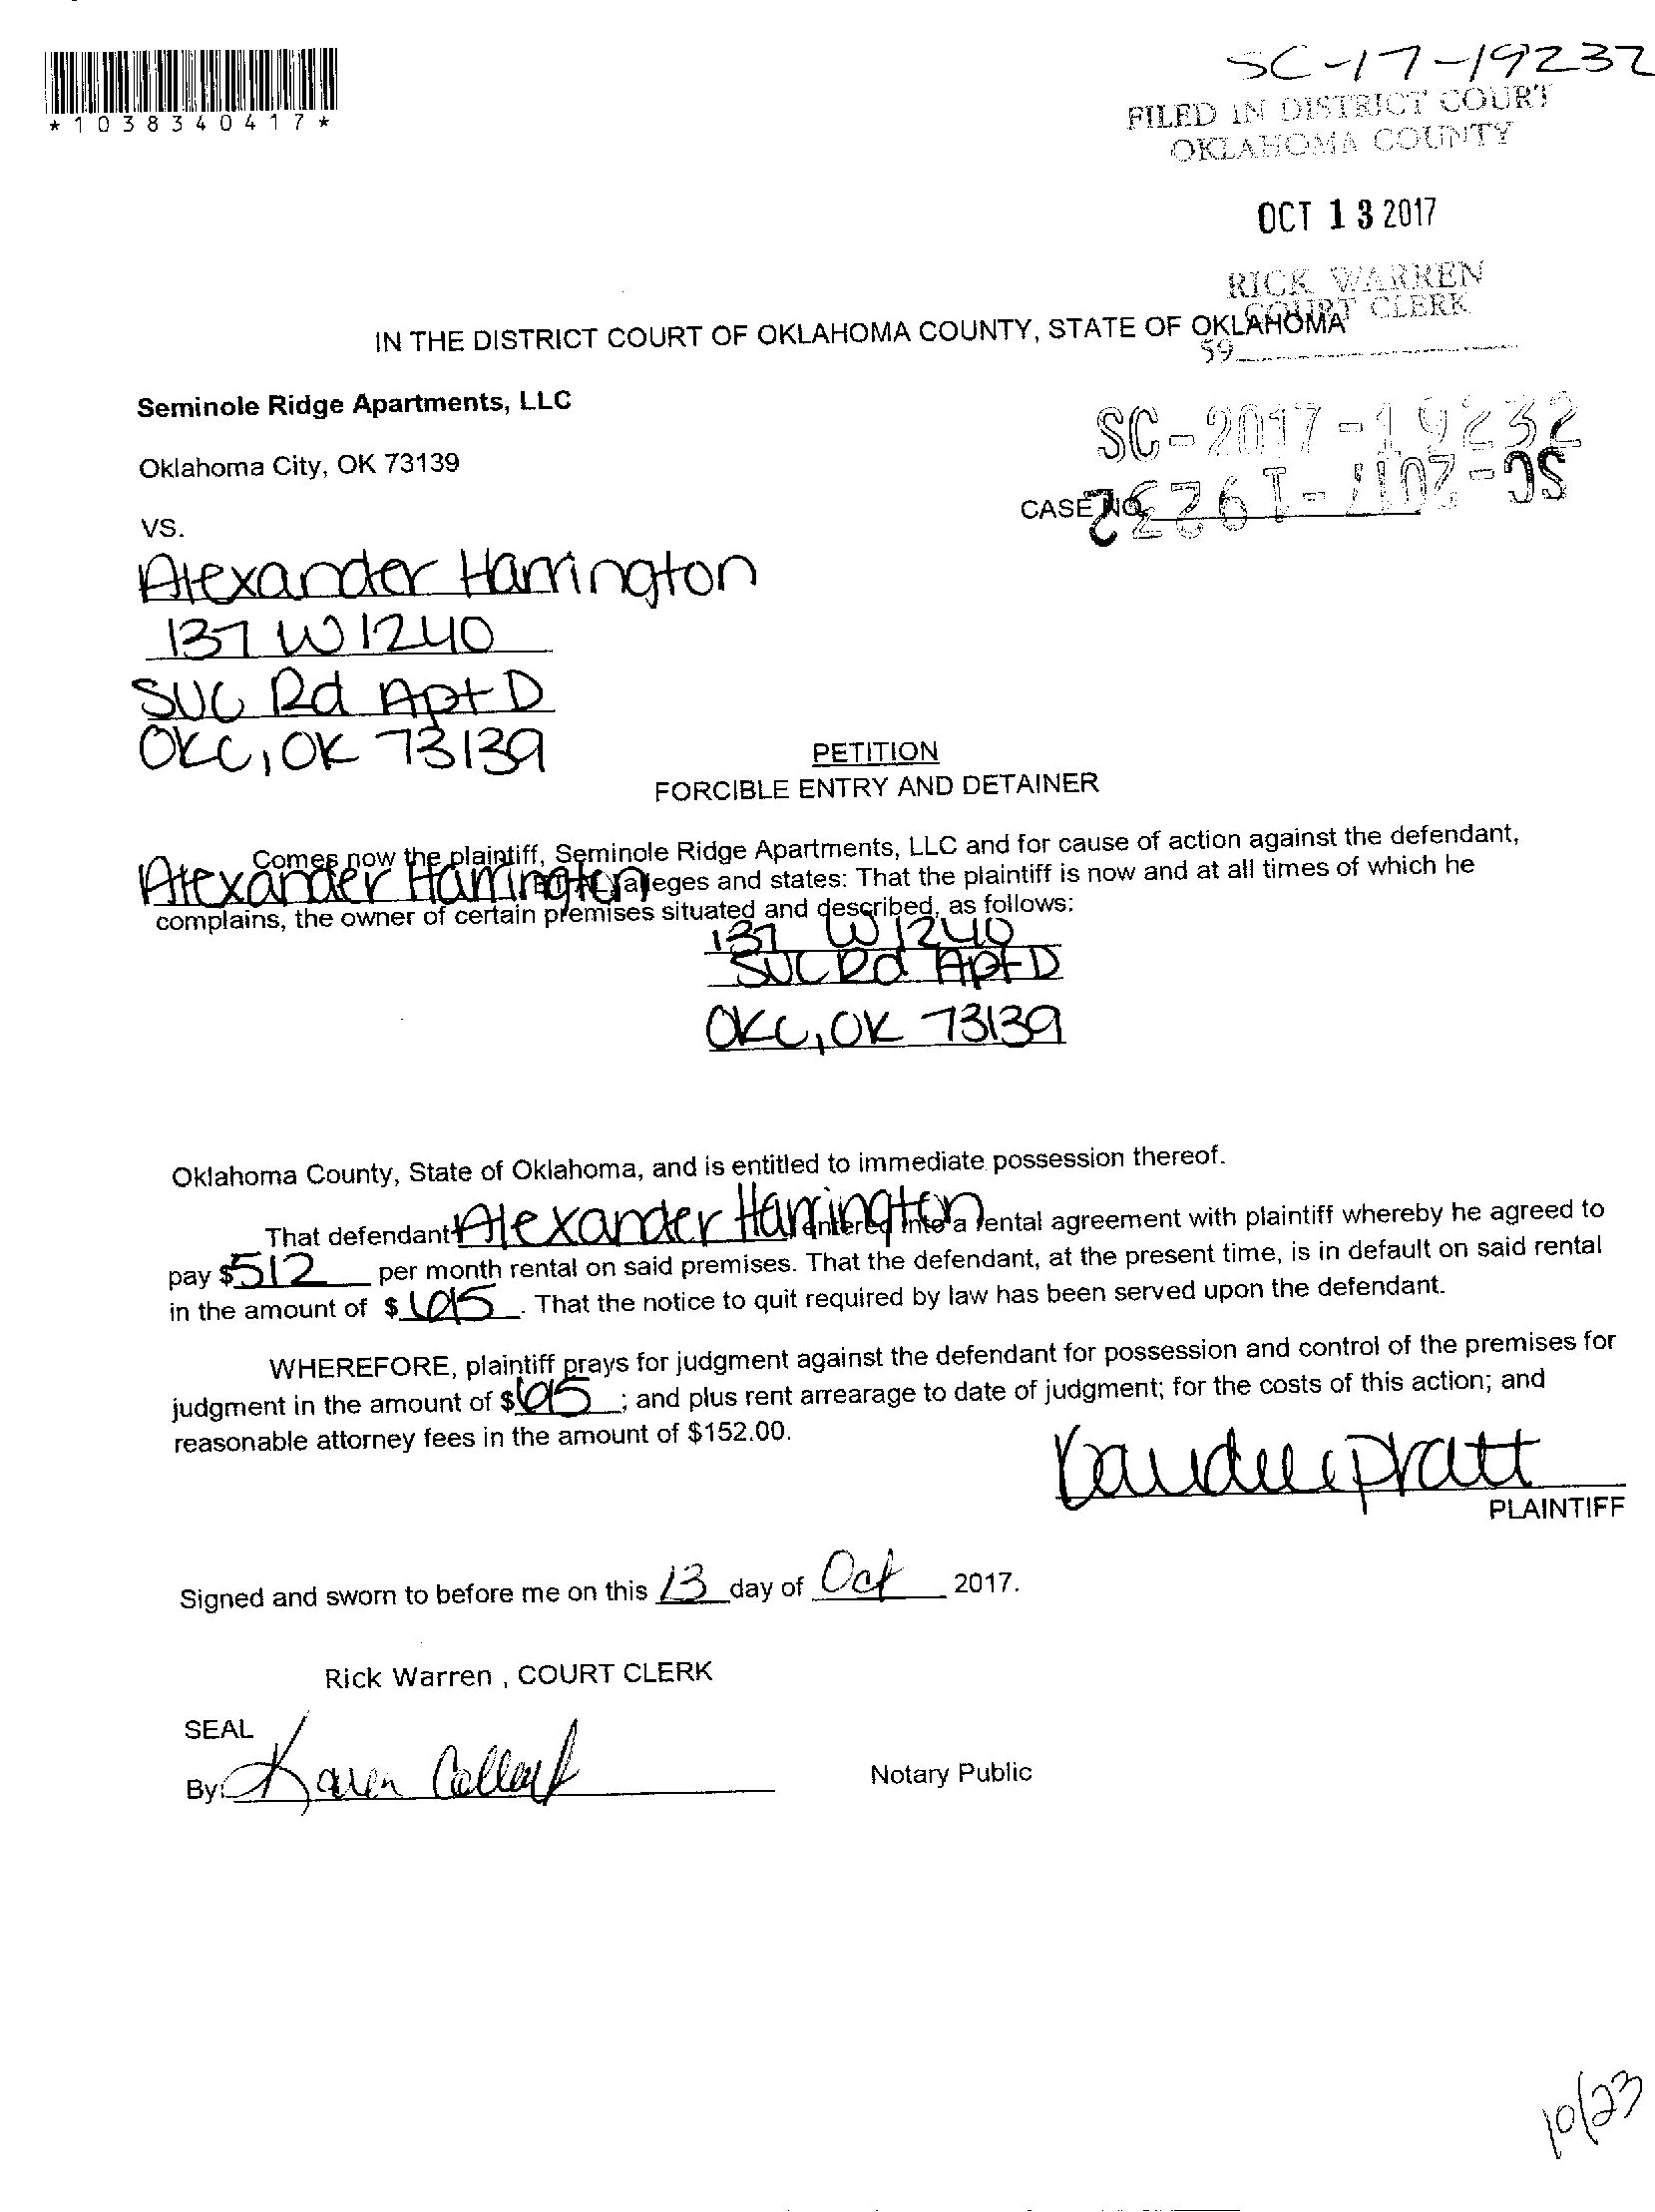 *1038340417*
SC-17-19232
FILED IN DISTRICT COURT
OKLAHOMA COUNTY
OCT 13 2017
RICK WARREN
COURT CLERK
IN THE DISTRICT COURT OF OKLAHOMA COUNTY, STATE OF OKLAHOMA
59
Seminole Ridge Apartments, LLC
SC-2017-19232
Oklahoma City, OK 73139
SC-2017-19232
CASE NO.
VS.
Alexander Harrington
137 W 1240
SVC Rd Apt D
OKC, OK 73139
PETITION
FORCIBLE ENTRY AND DETAINER
Comes now the plaintiff, Seminole Ridge Apartments, LLC and for cause of action against the defendant,
Alexander Harrington alleges and states: That the plaintiff is now and at all times of which he
complains, the owner of certain premises situated and described, as follows:
137 W 1240
SVC Rd Apt D
OKC, OK 73139
Oklahoma County, State of Oklahoma, and is entitled to immediate possession thereof.
That defendant Alexander Harrington entered into a rental agreement with plaintiff whereby he agreed to
pay $512 per month rental on said premises. That the defendant, at the present time, is in default on said rental
in the amount of $ . That the notice to quit required by law has been served upon the defendant.
WHEREFORE, plaintiff prays for judgment against the defendant for possession and control of the premises for
judgment in the amount of $ ; and plus rent arrearage to date of judgment; for the costs of this action; and
reasonable attorney fees in the amount of $152.00.
Pratt
PLAINTIFF
Signed and sworn to before me on this 13 day of Oct 2017.
Rick Warren , COURT CLERK
SEAL
By: Karen
Notary Public
10/23